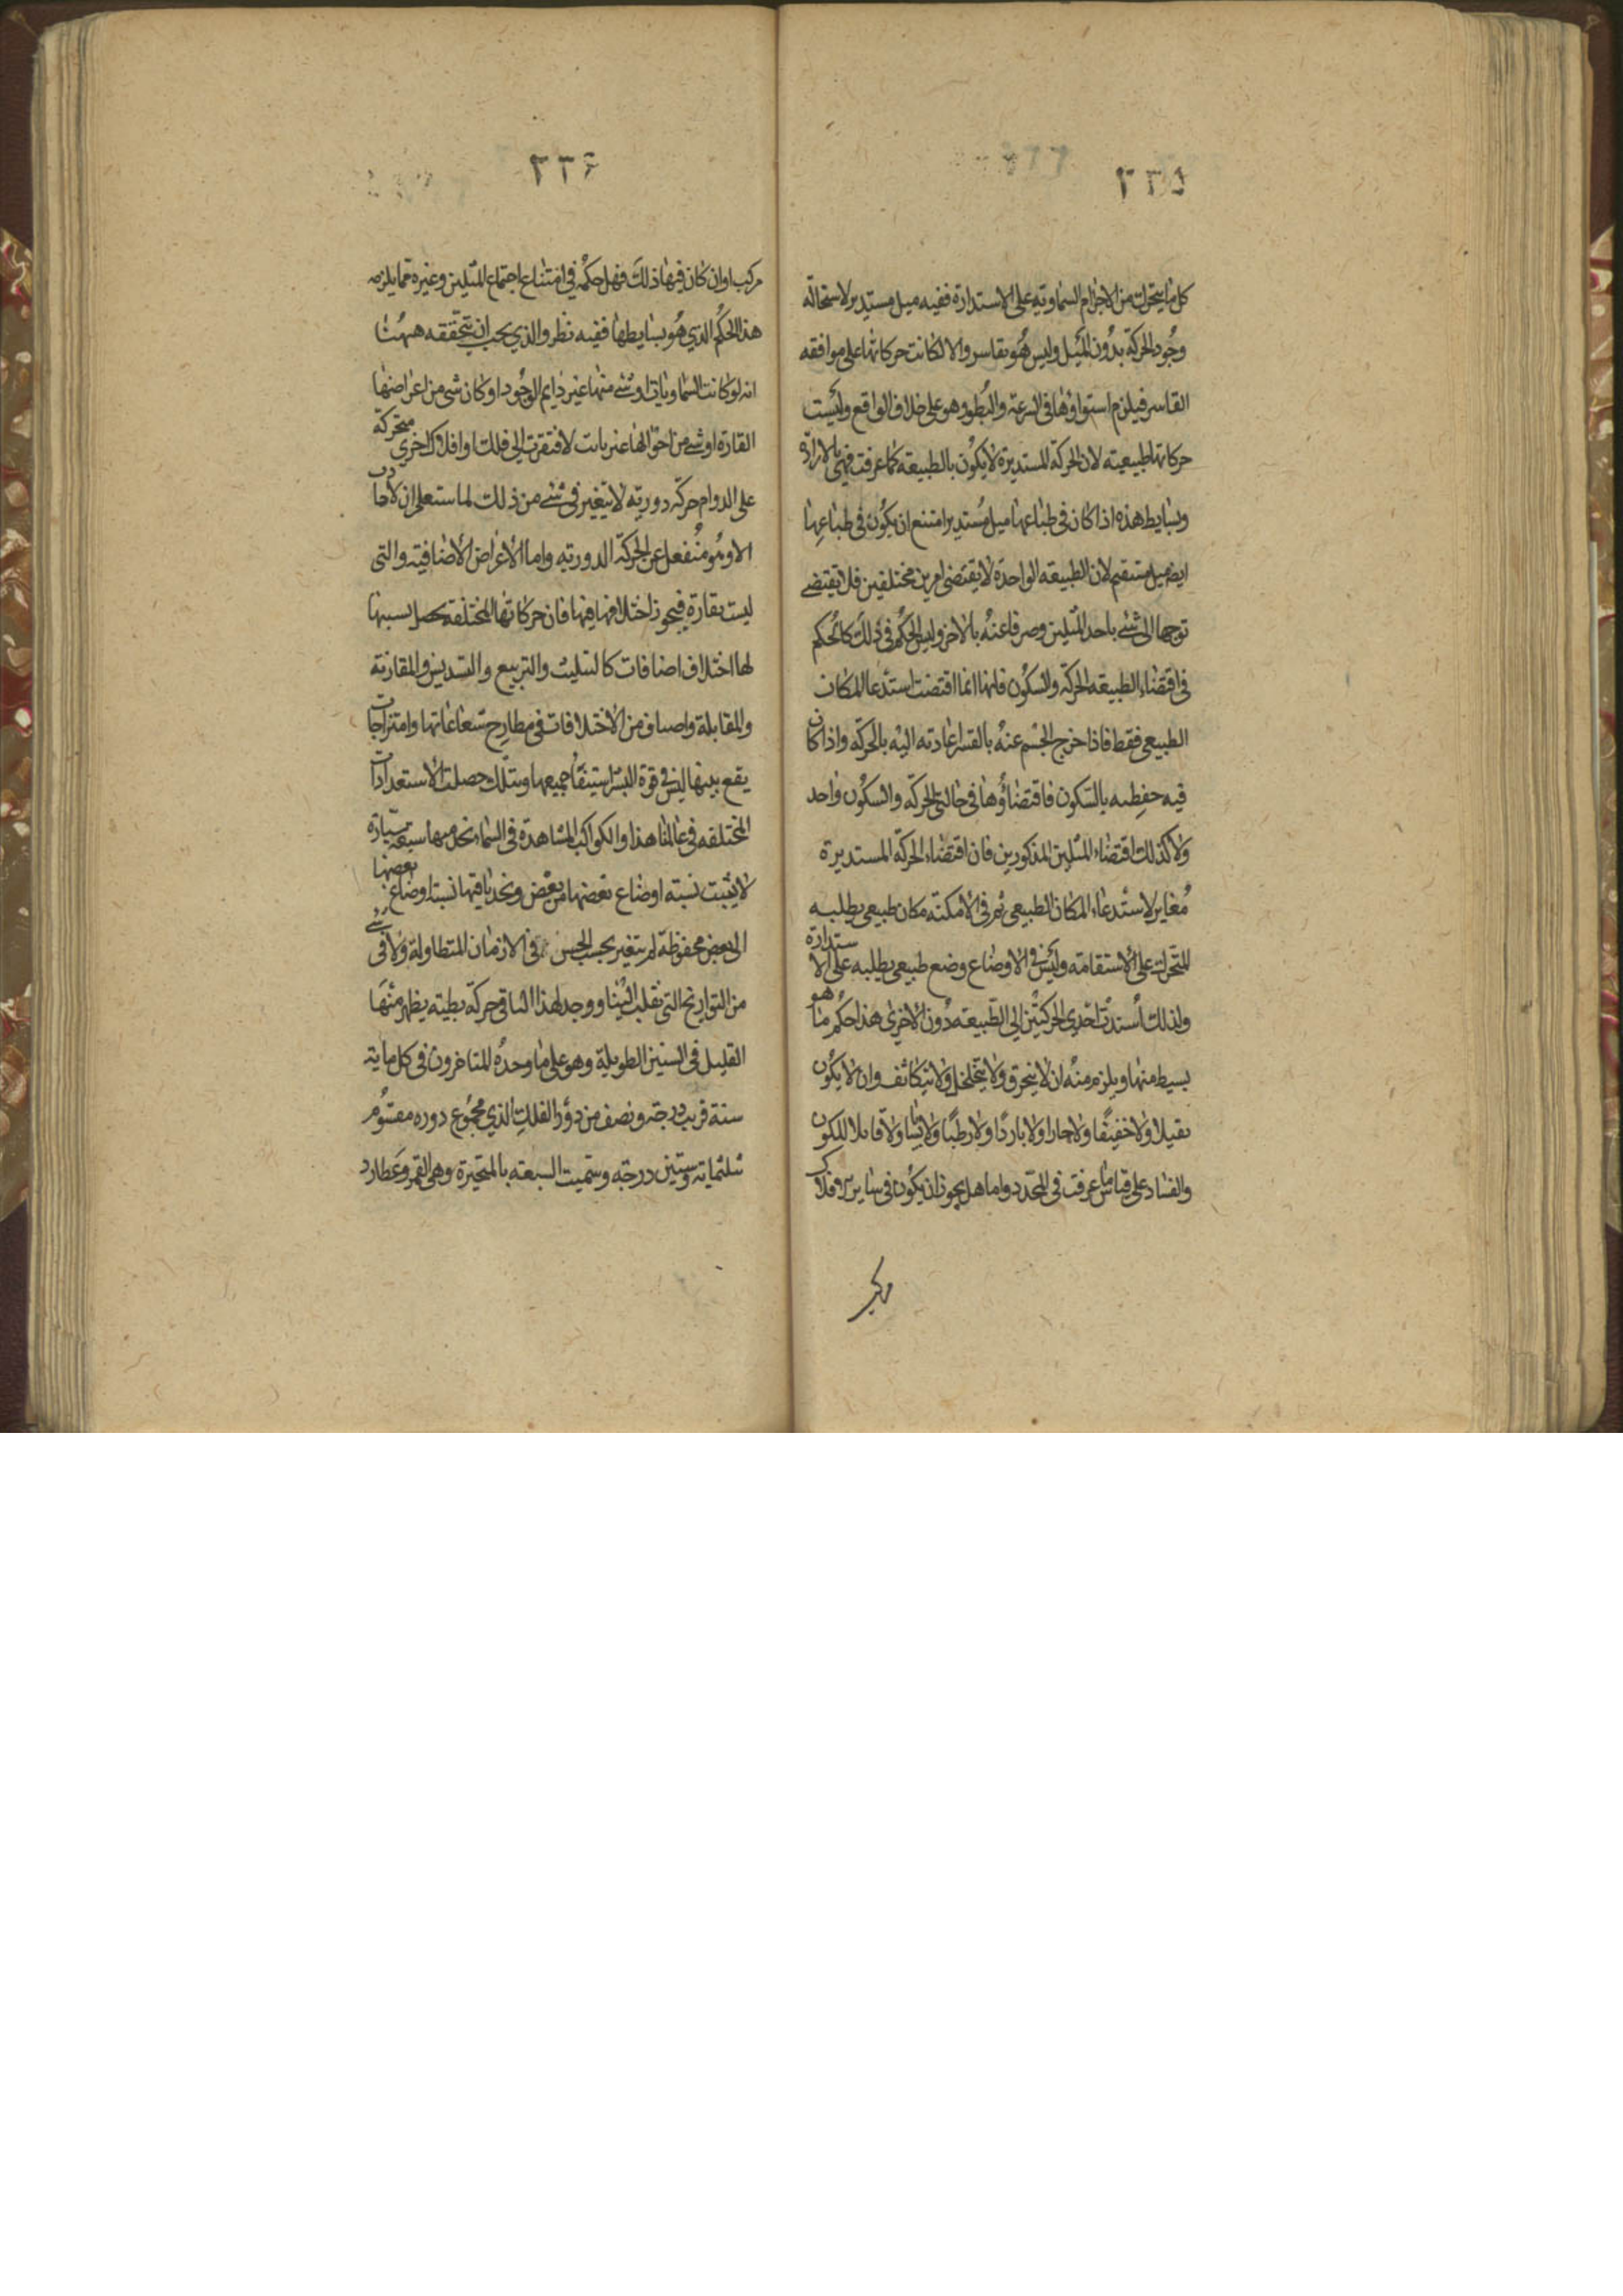 ٢٣٥
كل ما يتحرك من الاجرام السماوية على الاستدارة ففيه ميل مستدير لاستحالة
وجود الحركة بدون الميل وليس هو بقاسر والا لكانت حركاتها على موافقه
القاسر فيلزم استواؤها فى السرعة والبطوء وهو على خلاف الواقع وليست
حركاتها طبيعيته لان الحركة المستديرة لا يكون بالطبيعة كما عرفت فهى بالارادة
وبسايط هذه اذا كان فى طباعها ميل مستدير امتنع ان يكون فى طباعها
ايضا ميل مستقيم لان الطبيعه الواحدة لا يقتضى امرين مختلفين فلا يقتضے
توجها الى شئ باحد الميلين وصرفا عنه بالاخر وليس الحكم فى ذلك كالحكم
فى اقتضاء الطبيعه الحركة والسكون فانها انما اقتضت استدعا المكان
الطبيعى فقط فاذا خرج الجسم عنه بالقسر اعادته اليه بالحركة واذا كان
فيه حفظه بالسكون فاقتضاؤها فى حالتى الحركة والسكون واحد
ولا كذلك اقتضاء الميلين المذكورين فان اقتضاء الحركة المستديرة
مغاير لاستدعاء المكان الطبيعى ثم فى الامكنة مكان طبيعى يطلبه
المتحرك على الاستقامه وليس فى الاوضاع وضع طبيعى يطلبه على الاستدارة
ولذلك اسندت احدى الحركتين الى الطبيعه دون الاخرى هذا حكم ما هو
بسيط منها ويلزم منه ان لا ينخرق ولا يتخلخل ولا يتكاثف وان لا يكون
ثقيلا ولا خفيفا ولا حارا ولا باردا ولا رطبا ولا يابسا ولا قابلا للكون
والفساد على قياس ما عرفت فى المحدد واما هل يجوز ان يكون فى ساير الافلاك
مركب
٢٣٦
مركب او ان كان فيها ذلك فهل حكمه فى امتناع اجتماع الميلين وغيره مما يلزمه
هذا الحكم الذي هو بسايطها ففيه نظر والذي يجب ان يتحققه ههنا
انه لو كانت السماويات او شئ منها غير دايم الوجود او كان شى من اعراضها
القارة او شئ من احوالها غير ثابت لافتقرت الى فلك او افلاك اخرى متحركة
على الدوام حركة دورية لا يتغير فى شئ من ذلك لما ستعلم ان لا حادث
الا وهو منفعل عن الحركة الدورية واما الاعراض الاضافية والتى
ليست بقارة فيجوز اختلافها فيها فان حركاتها المختلفة يحصل بسببها
لها اختلاف اضافات كالتثليث والتربيع والتسديس والمقارنة
والمقابلة واصناف من الاختلافات فى مطارح شعاعاتها وامتزاجات
يقع بينها ليس فى قوة البشر استيفاء جميعها وبتلك حصلت الاستعدادات
المختلفه فى عالمنا هذا والكواكب المشاهدة فى السماء نجد منها سبعة سيارة
لا يثبت نسبة اوضاع بعضها من بعض ونجد باقيها نسبة اوضاع بعضها
الى بعض محفوظة لم يتغير بحسب الحس فى الازمان المتطاولة ولا فى شئ
من التواريخ التى نقلت الينا ووجد لهذا الباقى حركة بطيئه يظهر منها
القليل فى السنين الطويلة وهو على ما وجده المتاخرون فى كل ماية
سنة قريب درجة ونصف من دور الفلك الذي مجموع دوره مقسوم
بثلثماية وستين درجة وسميت السبعة بالمتحيرة وهى القمر وعطارد